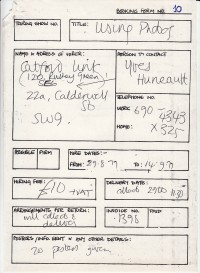 BOOKING FORM No. 10
TOURING SHOW No.
TITLE:
Using Photos
NAME & ADRESS OF HIRER:
PERSON TO CONTACT
Catford Unit
Yves
Huneault
22a,
St
SW9.
TELEPHONE No.
WORK: 690 4343
HOME: X 325
POSSIBLE FORM
HIRE DATES:-
FROM: 29.8.79 TO: 14.9.79
HIRING FEE:
£10 + VAT
DELIVERY DATE:
ARRANGEMENTS FOR RETURN:
will collect &
deliver
INVOICE No.
1396
PAID
POSTERS/INFO SENT & ANY OTHER DETAILS:
20 posters given